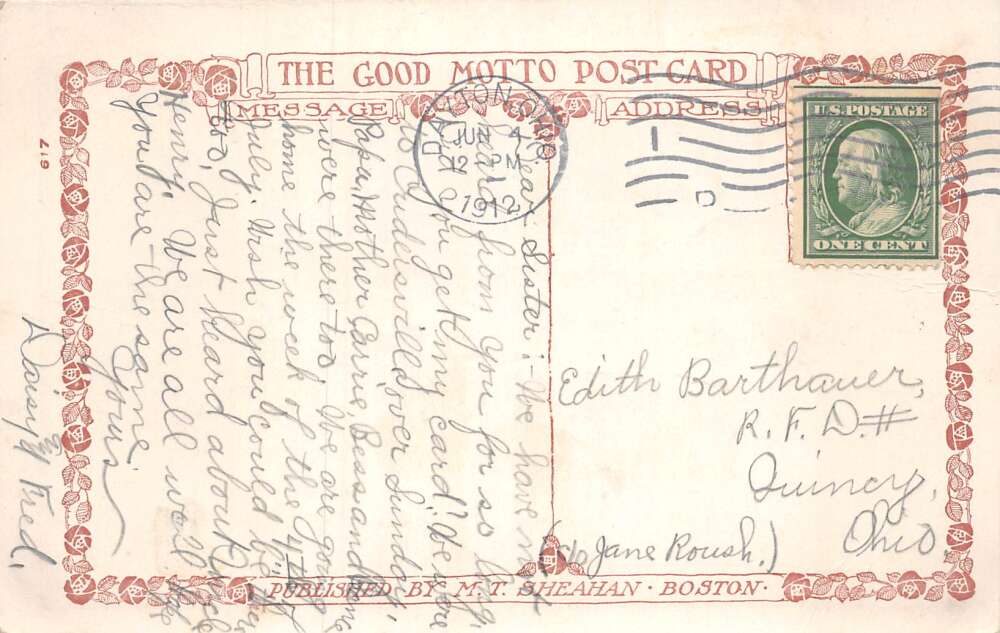 THE GOOD MOTTO POST CARD
MESSAGE
ADDRESS
DAYTON, OHIO
JUN 4
12 PM
1912
D
U.S. POSTAGE
ONE CENT
Dear Sister:- We have not
heard from you for so long,
Did you get my card? We were
to Luddersville over Sunday,
Papa, Mother Carrie Bess and
were there too. We are going
home the week of the 4th of
July. Wish you could be there
too, Just heard about Uncle
Henry. We are all well hope
you are the same.
Yours
Daisy & Fred.
Edith Barthauer,
R. F. D. #
Quincy,
Ohio.
(c/o Jane Roush.)
617
PUBLISHED BY M. T. SHEAHAN · BOSTON ·